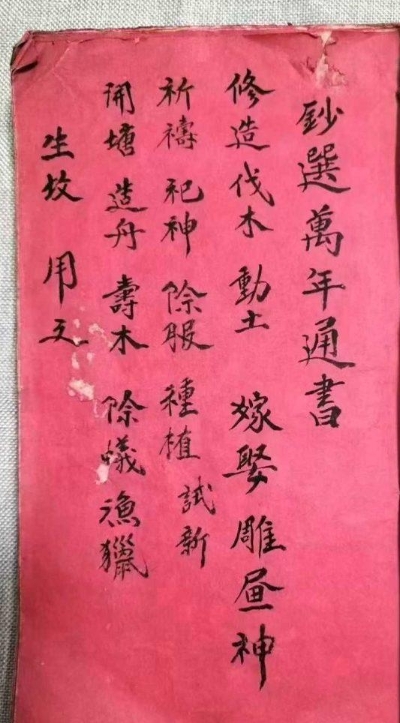 鈔選萬年通書
修造 伐木 動土 嫁娶 雕画神
祈禱 祀神 除服 種植 試新
開塘 造舟 壽木 除蟻 漁獵
生坟 用文